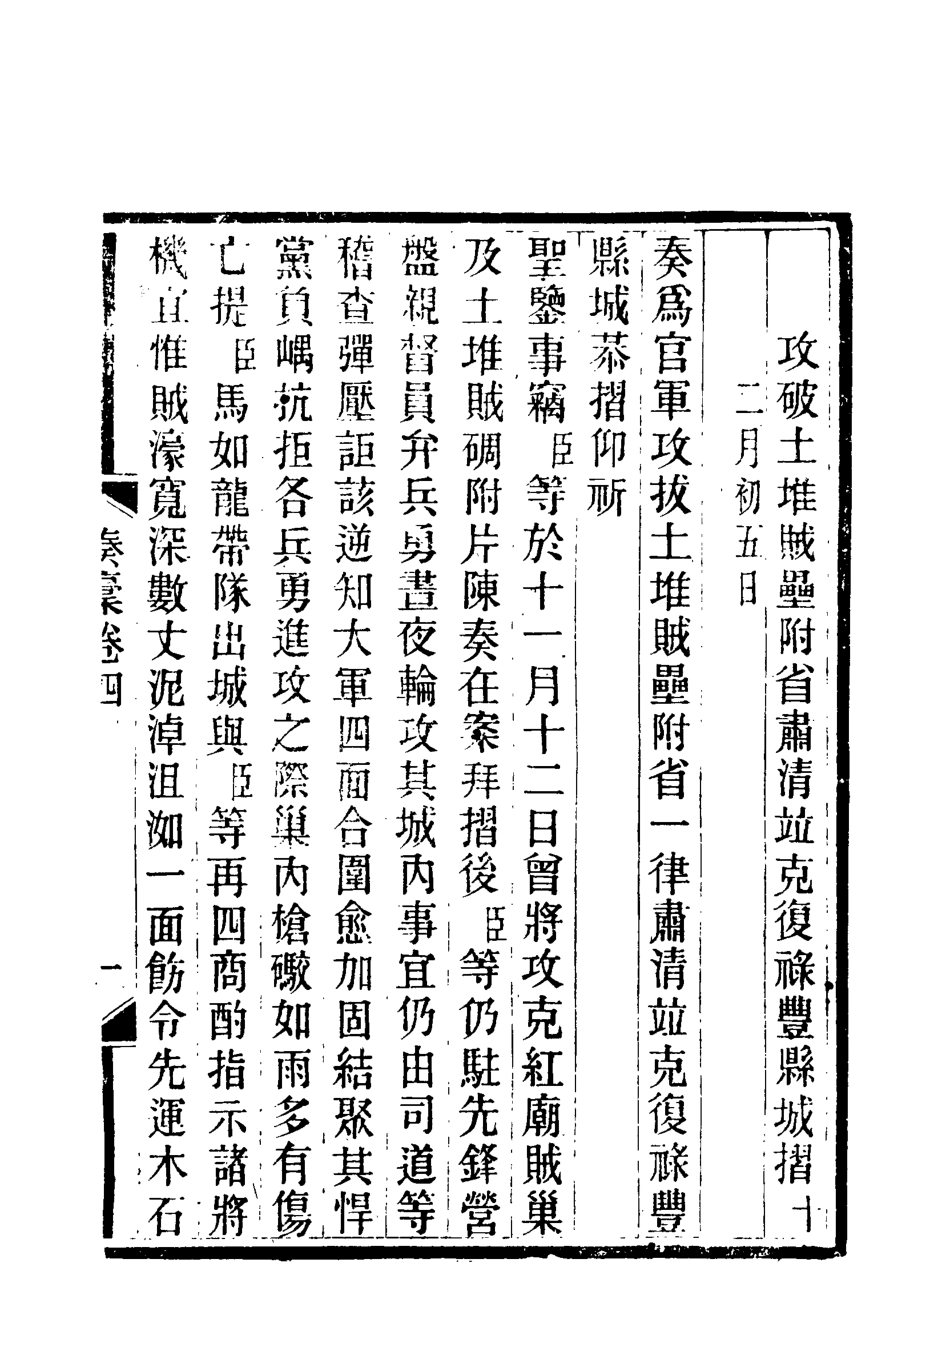 攻破土堆賊壘附省肅清竝克復祿豐縣城摺十
二月初五日
奏爲官軍攻拔土堆賊壘附省一律肅清竝克復祿豐
縣城恭摺仰祈
聖鑒事竊臣等於十一月十二日曾將攻克紅廟賊巢
及土堆賊碉附片陳奏在案拜摺後臣等仍駐先鋒營
盤親督員弁兵勇晝夜輪攻其城內事宜仍由司道等
稽查彈壓詎該逆知大軍四面合圍愈加固結聚其悍
黨負嵎抗拒各兵勇進攻之際巢內槍礮如雨多有傷
亡提臣馬如龍帶隊出城與臣等再四商酌指示諸將
機宜惟賊濠寬深數丈泥淖沮洳一面飭令先運木石
奏稾卷四
一